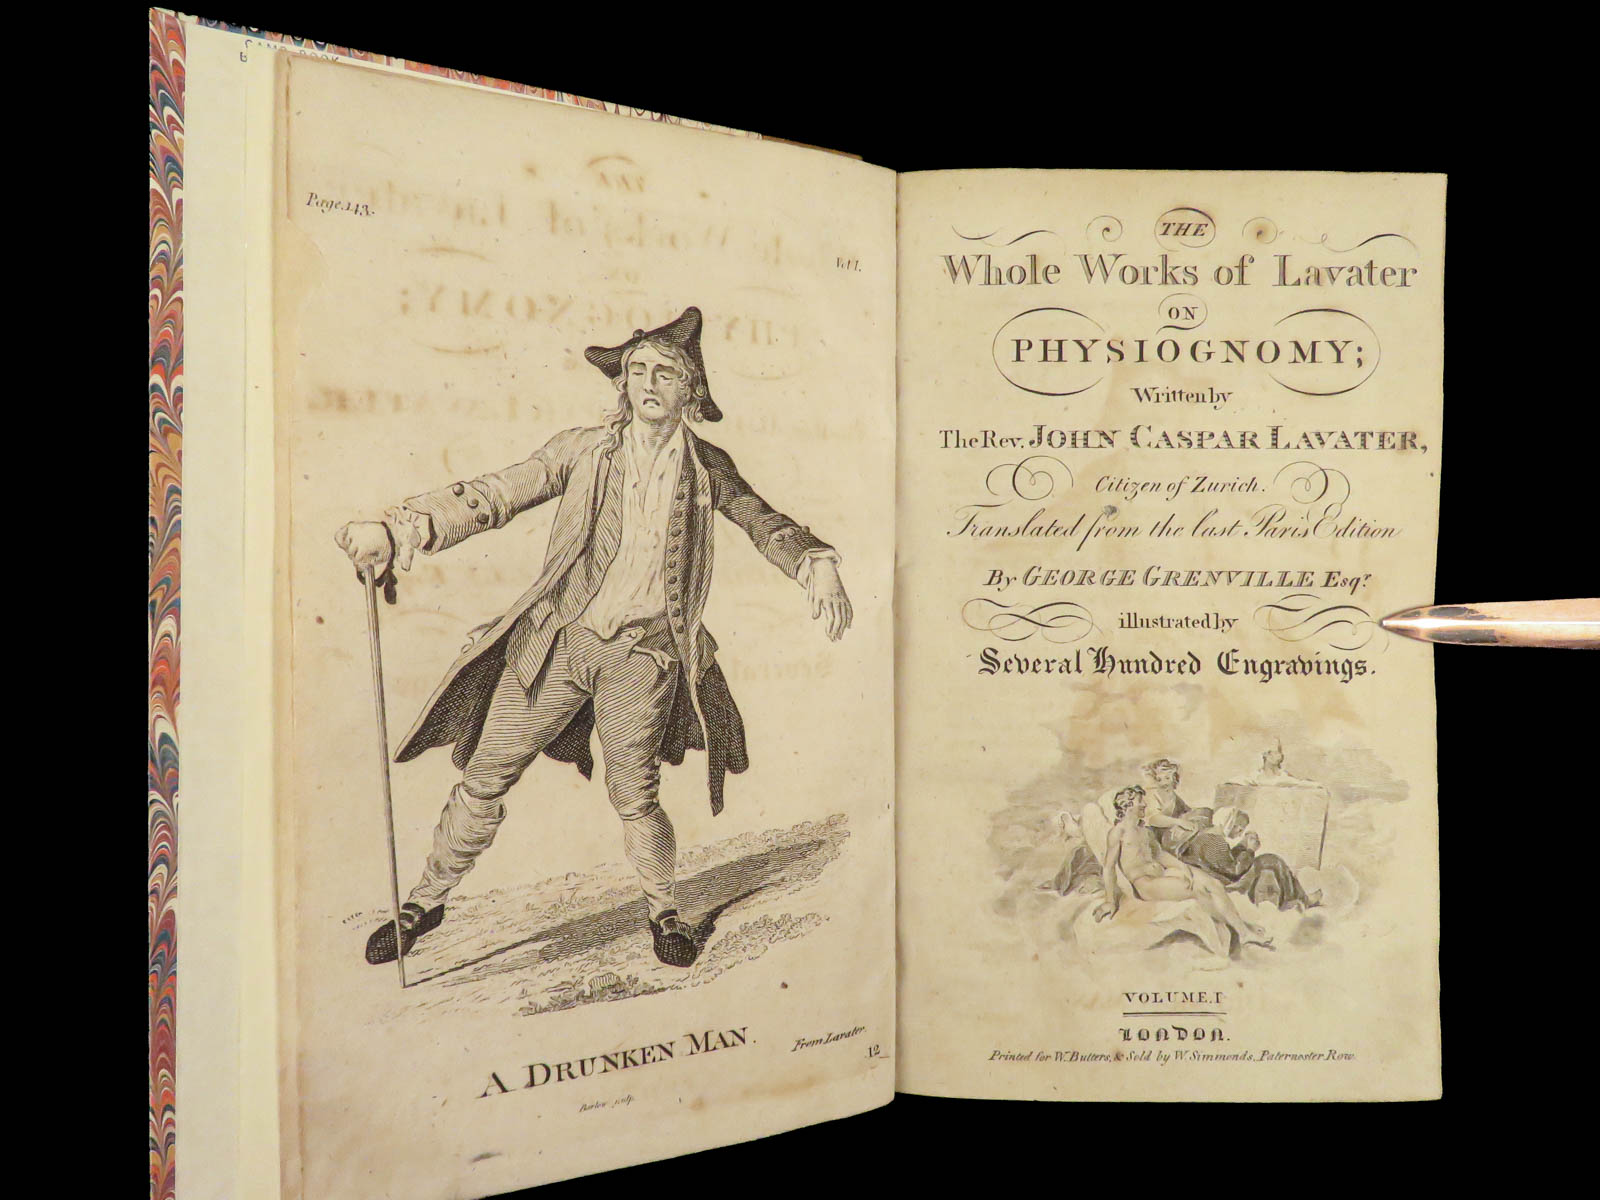 Page.143.
Vol I.
A DRUNKEN MAN.
From Lavater.
12
Barlow sculp.
THE
Whole Works of Lavater
ON
PHYSIOGNOMY;
Written by
The Rev. JOHN CASPAR LAVATER,
Citizen of Zurich.
Translated from the last Paris Edition
By GEORGE GRENVILLE Esqr.
illustrated by
Several Hundred Engravings.
VOLUME.I
LONDON.
Printed for W. Butters, & Sold by W. Simmonds, Paternoster Row.